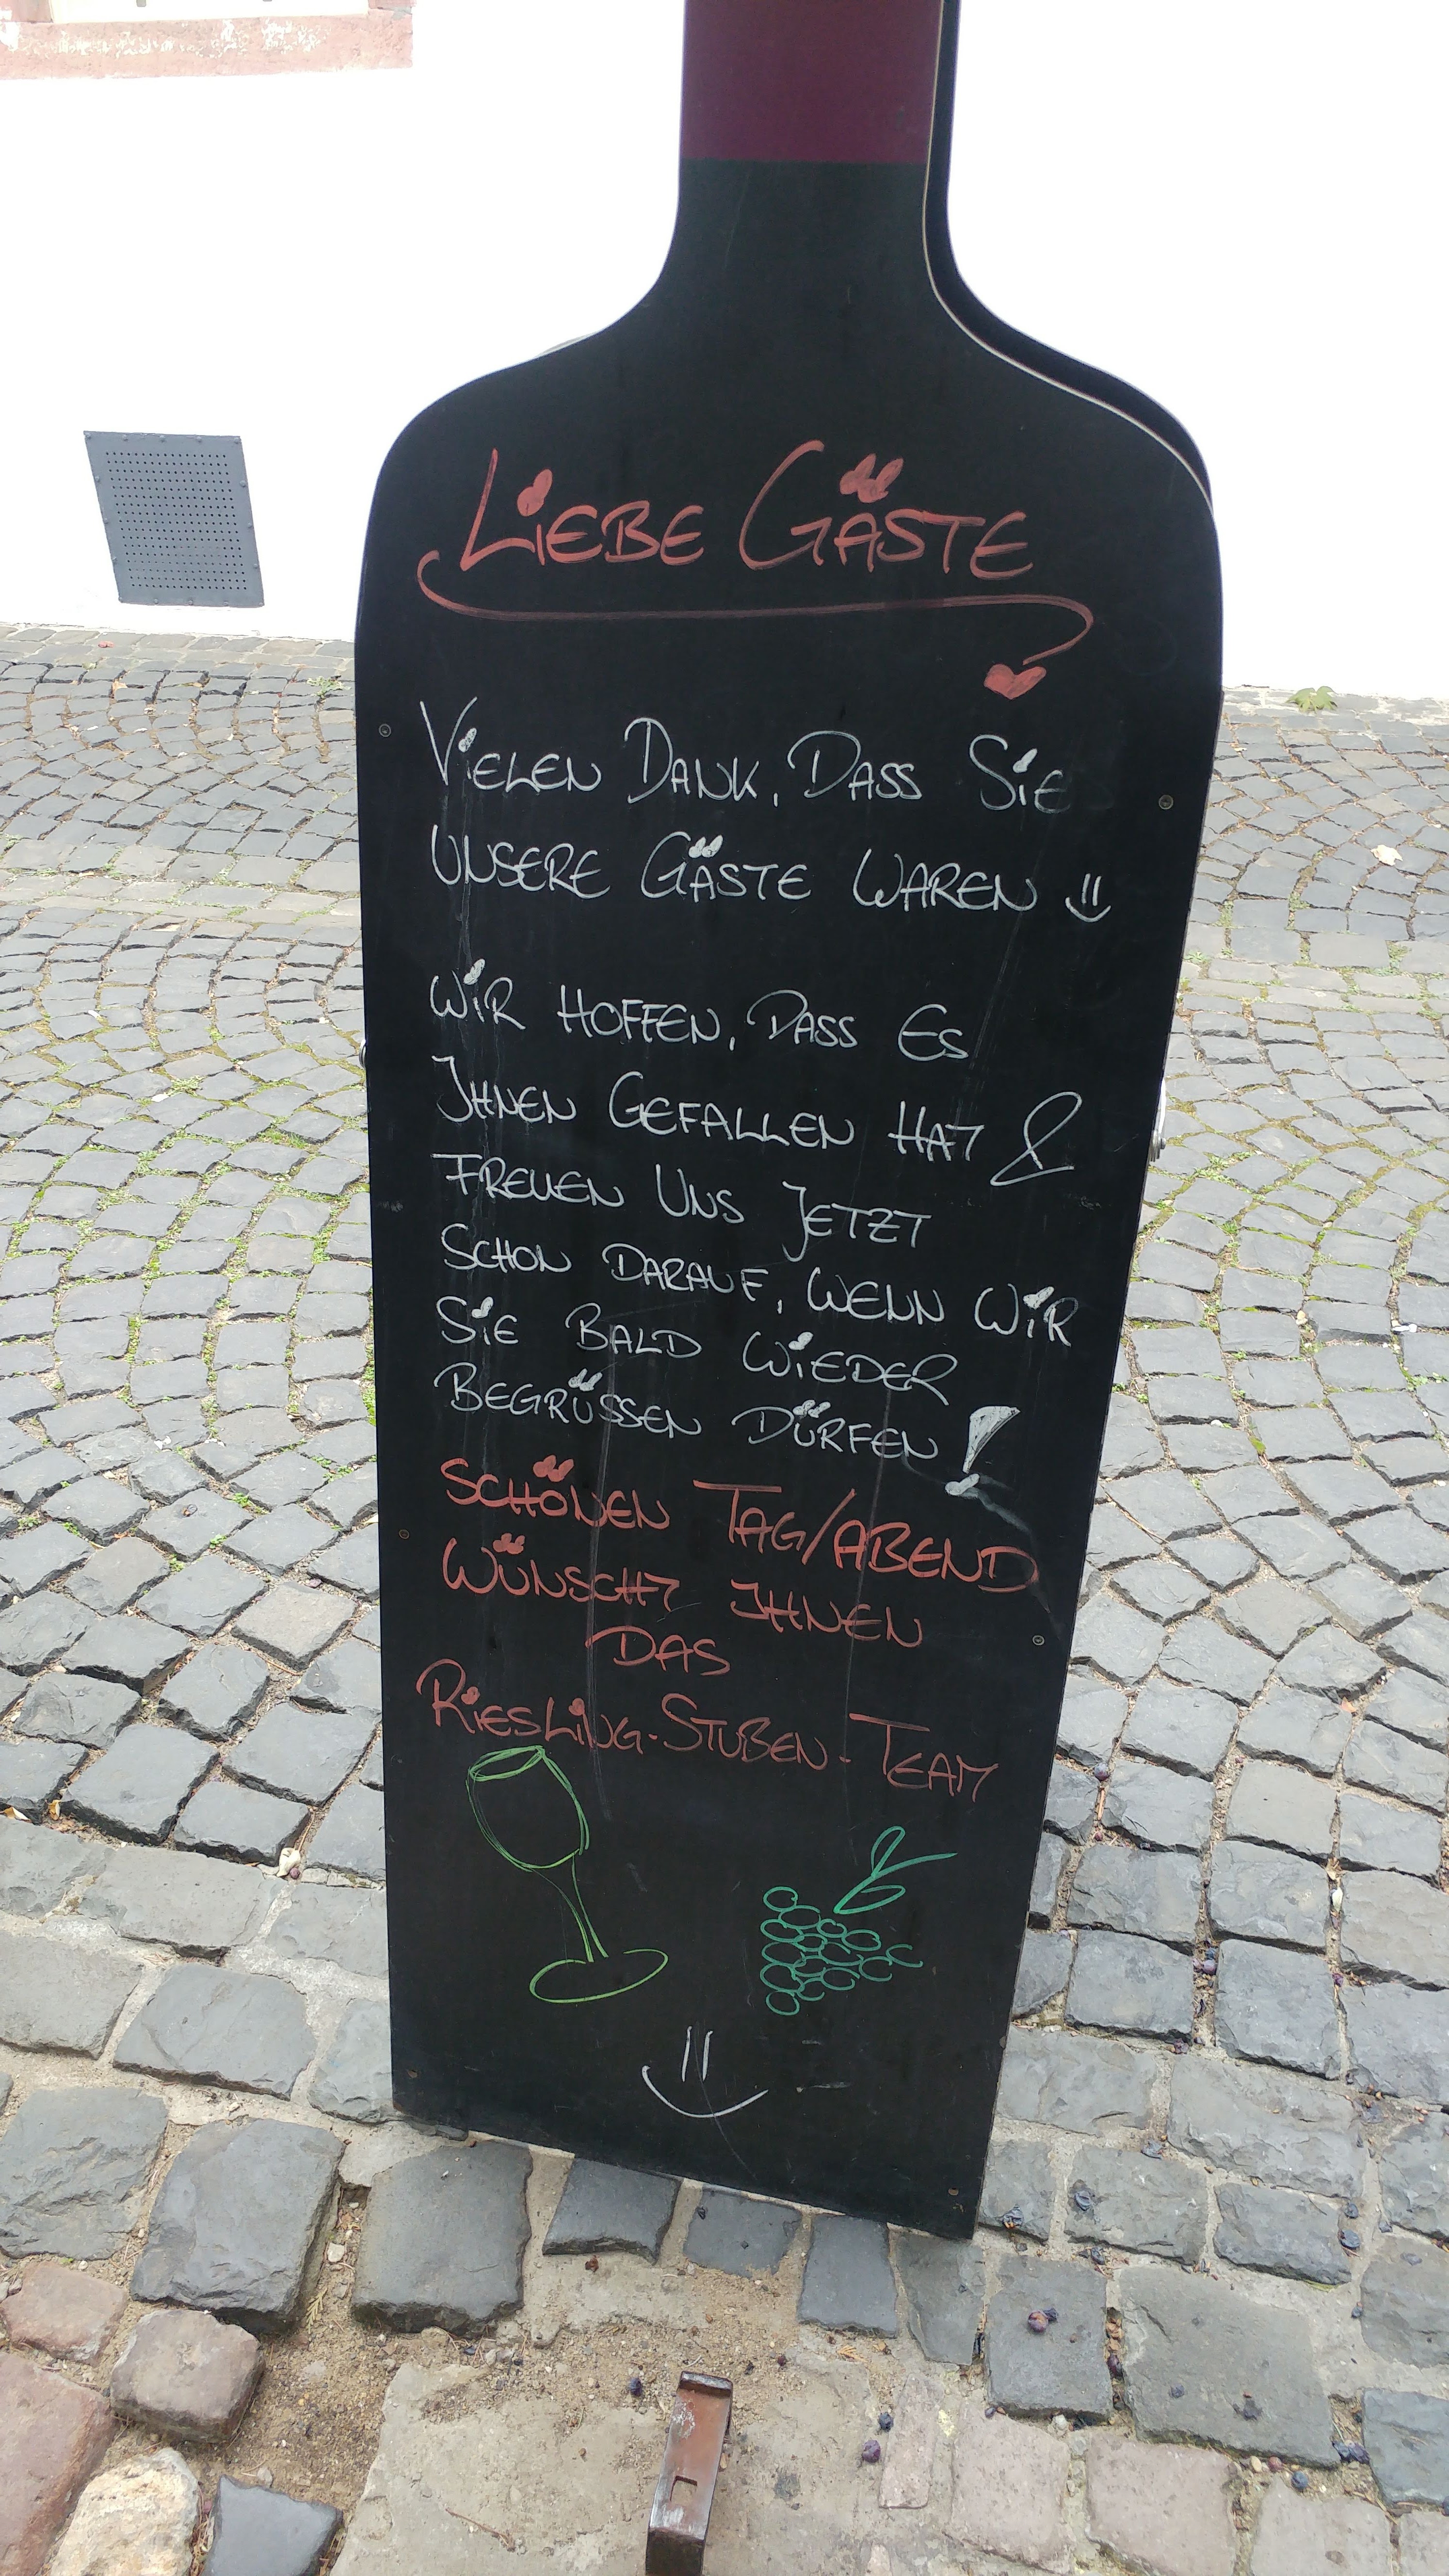 LIEBE GÄSTE
VIELEN DANK, DASS SIE
UNSERE GÄSTE WAREN
WIR HOFFEN, DASS ES
IHNEN GEFALLEN HAT &
FREUEN UNS JETZT
SCHON DARAUF, WENN WIR
SIE BALD WIEDER
BEGRÜSSEN DÜRFEN!
SCHÖNEN TAG/ABEND
WÜNSCHT IHNEN
DAS
RIESLING-STUBEN-TEAM